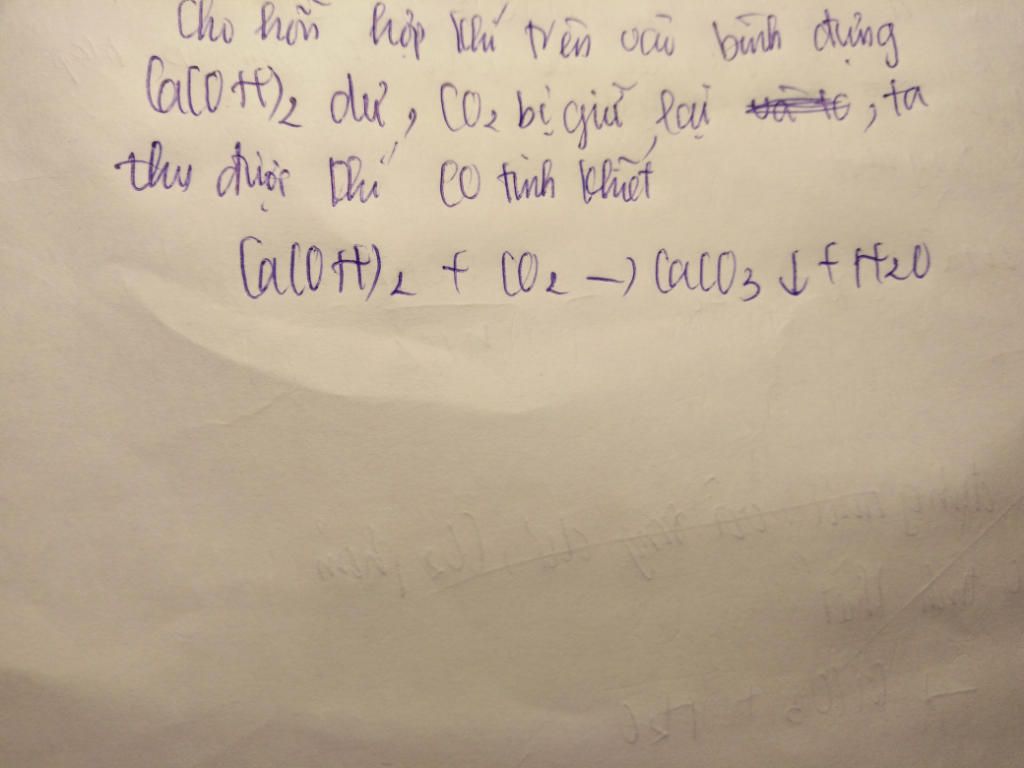 Cho hỗn hợp khí trên vào bình đựng
Ca(OH)2 dư, CO2 bị giữ lại, ta
thu được khí CO tinh khiết
Ca(OH)2 + CO2 → CaCO3 ↓ + H2O